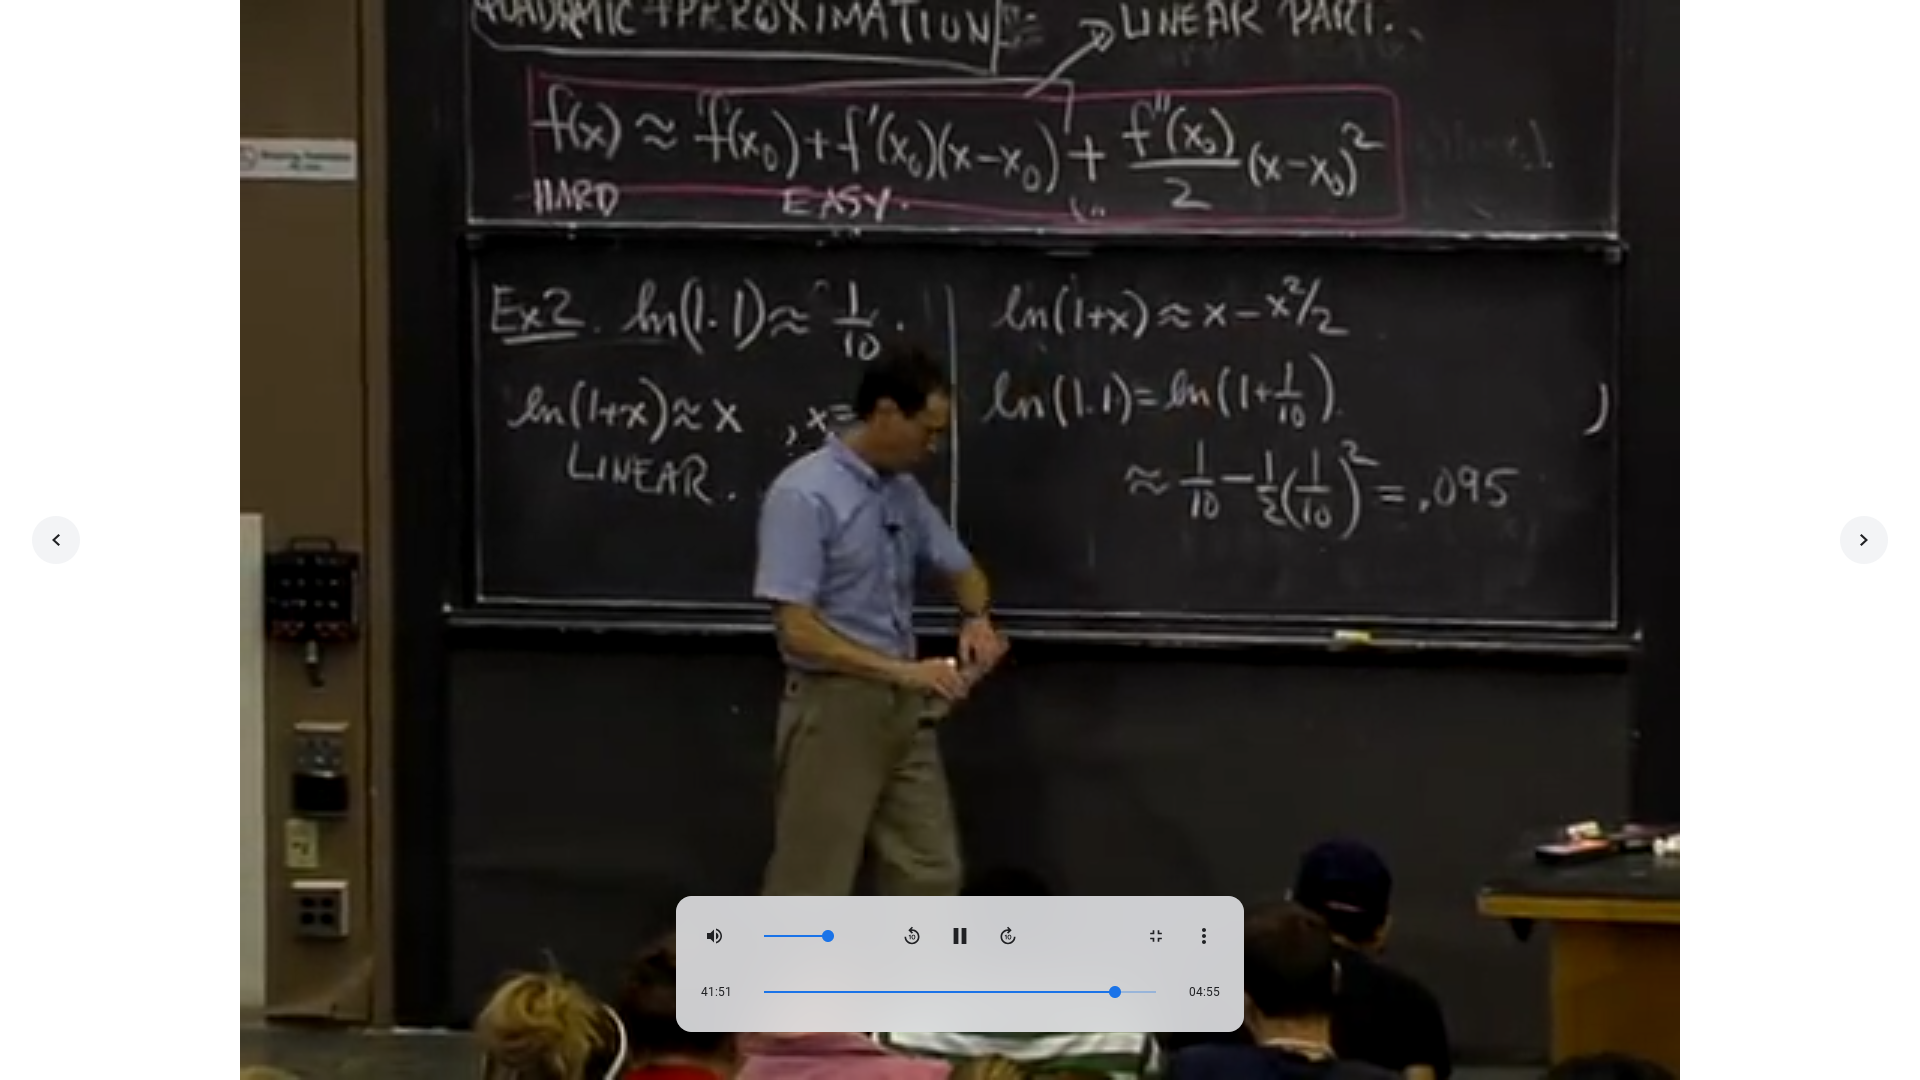 QUADRATIC APPROXIMATION
LINEAR PART.
f(x) ≈ f(x₀) + f'(x₀)(x-x₀) + f''(x₀)/2 (x-x₀)²
HARD EASY.
Ex2. ln(1.1) ≈ 1/10.
ln(1+x) ≈ x , x=
LINEAR.
ln(1+x) ≈ x - x²/2
ln(1.1) = ln(1+1/10).
≈ 1/10 - 1/2(1/10)² = .095
)
41:51
04:55